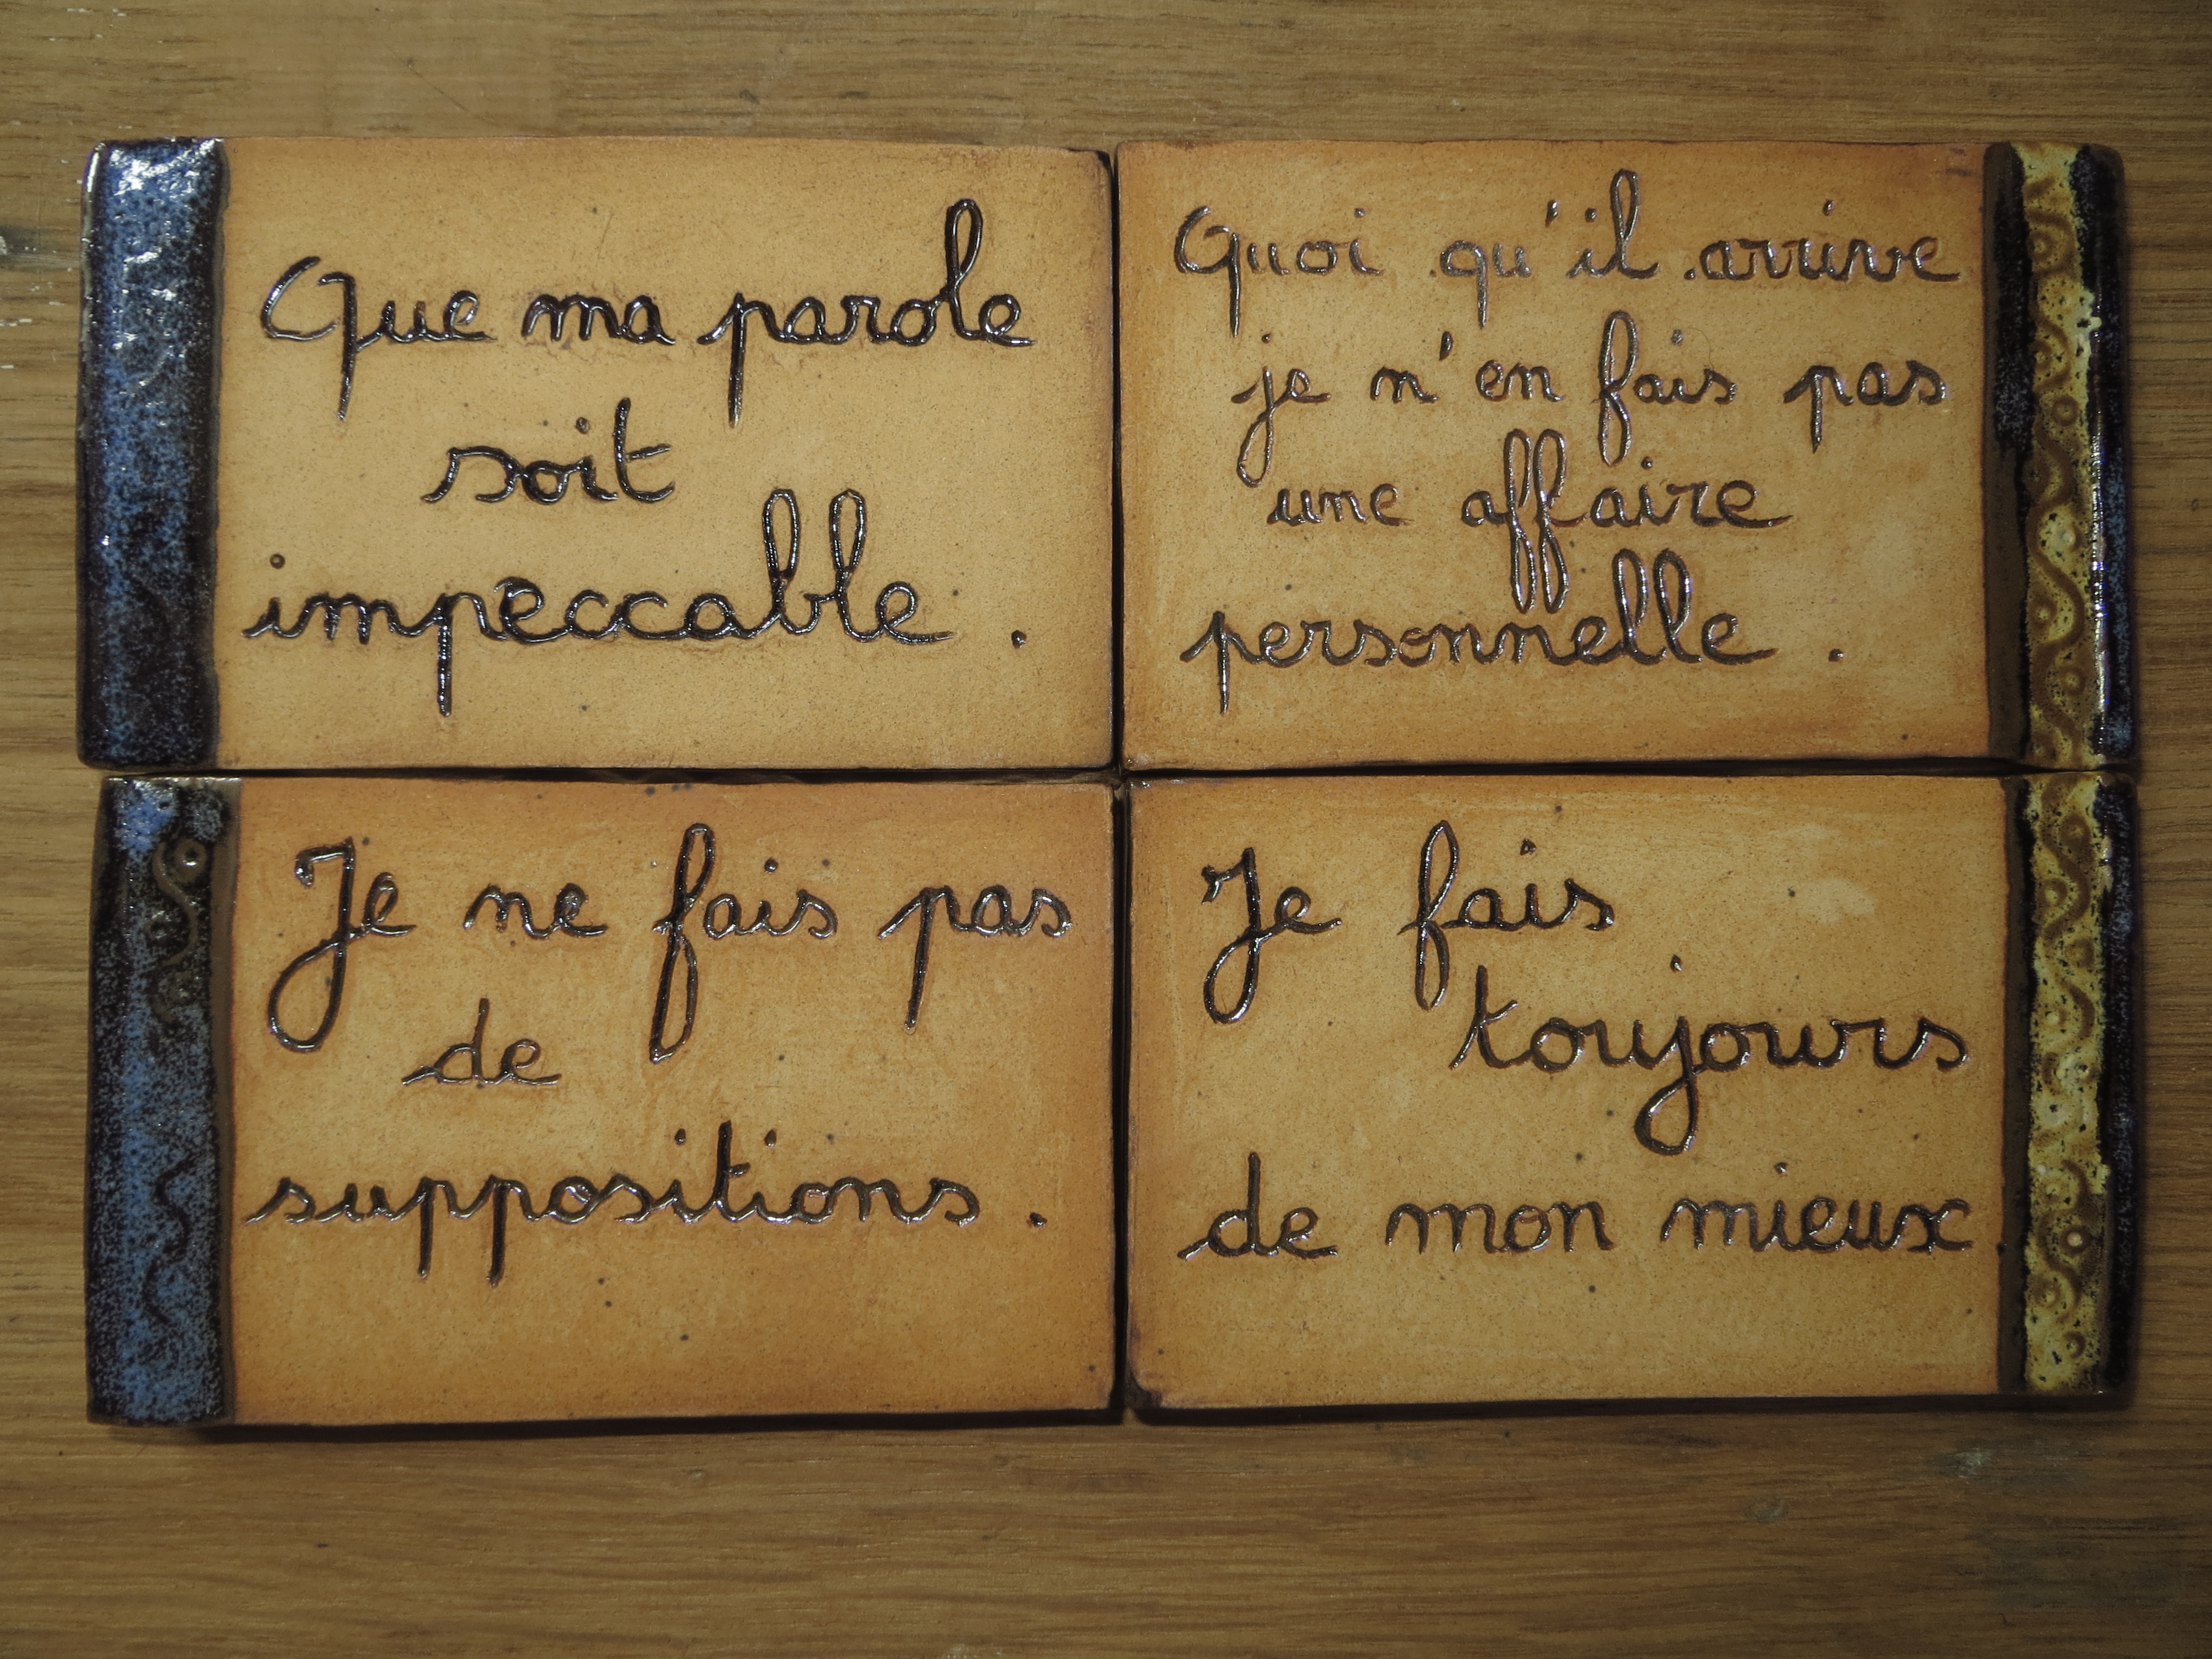 Que ma parole
soit
impeccable.
Quoi qu'il arrive
je n'en fais pas
une affaire
personnelle.
Je ne fais pas
de
suppositions.
Je fais
toujours
de mon mieux.